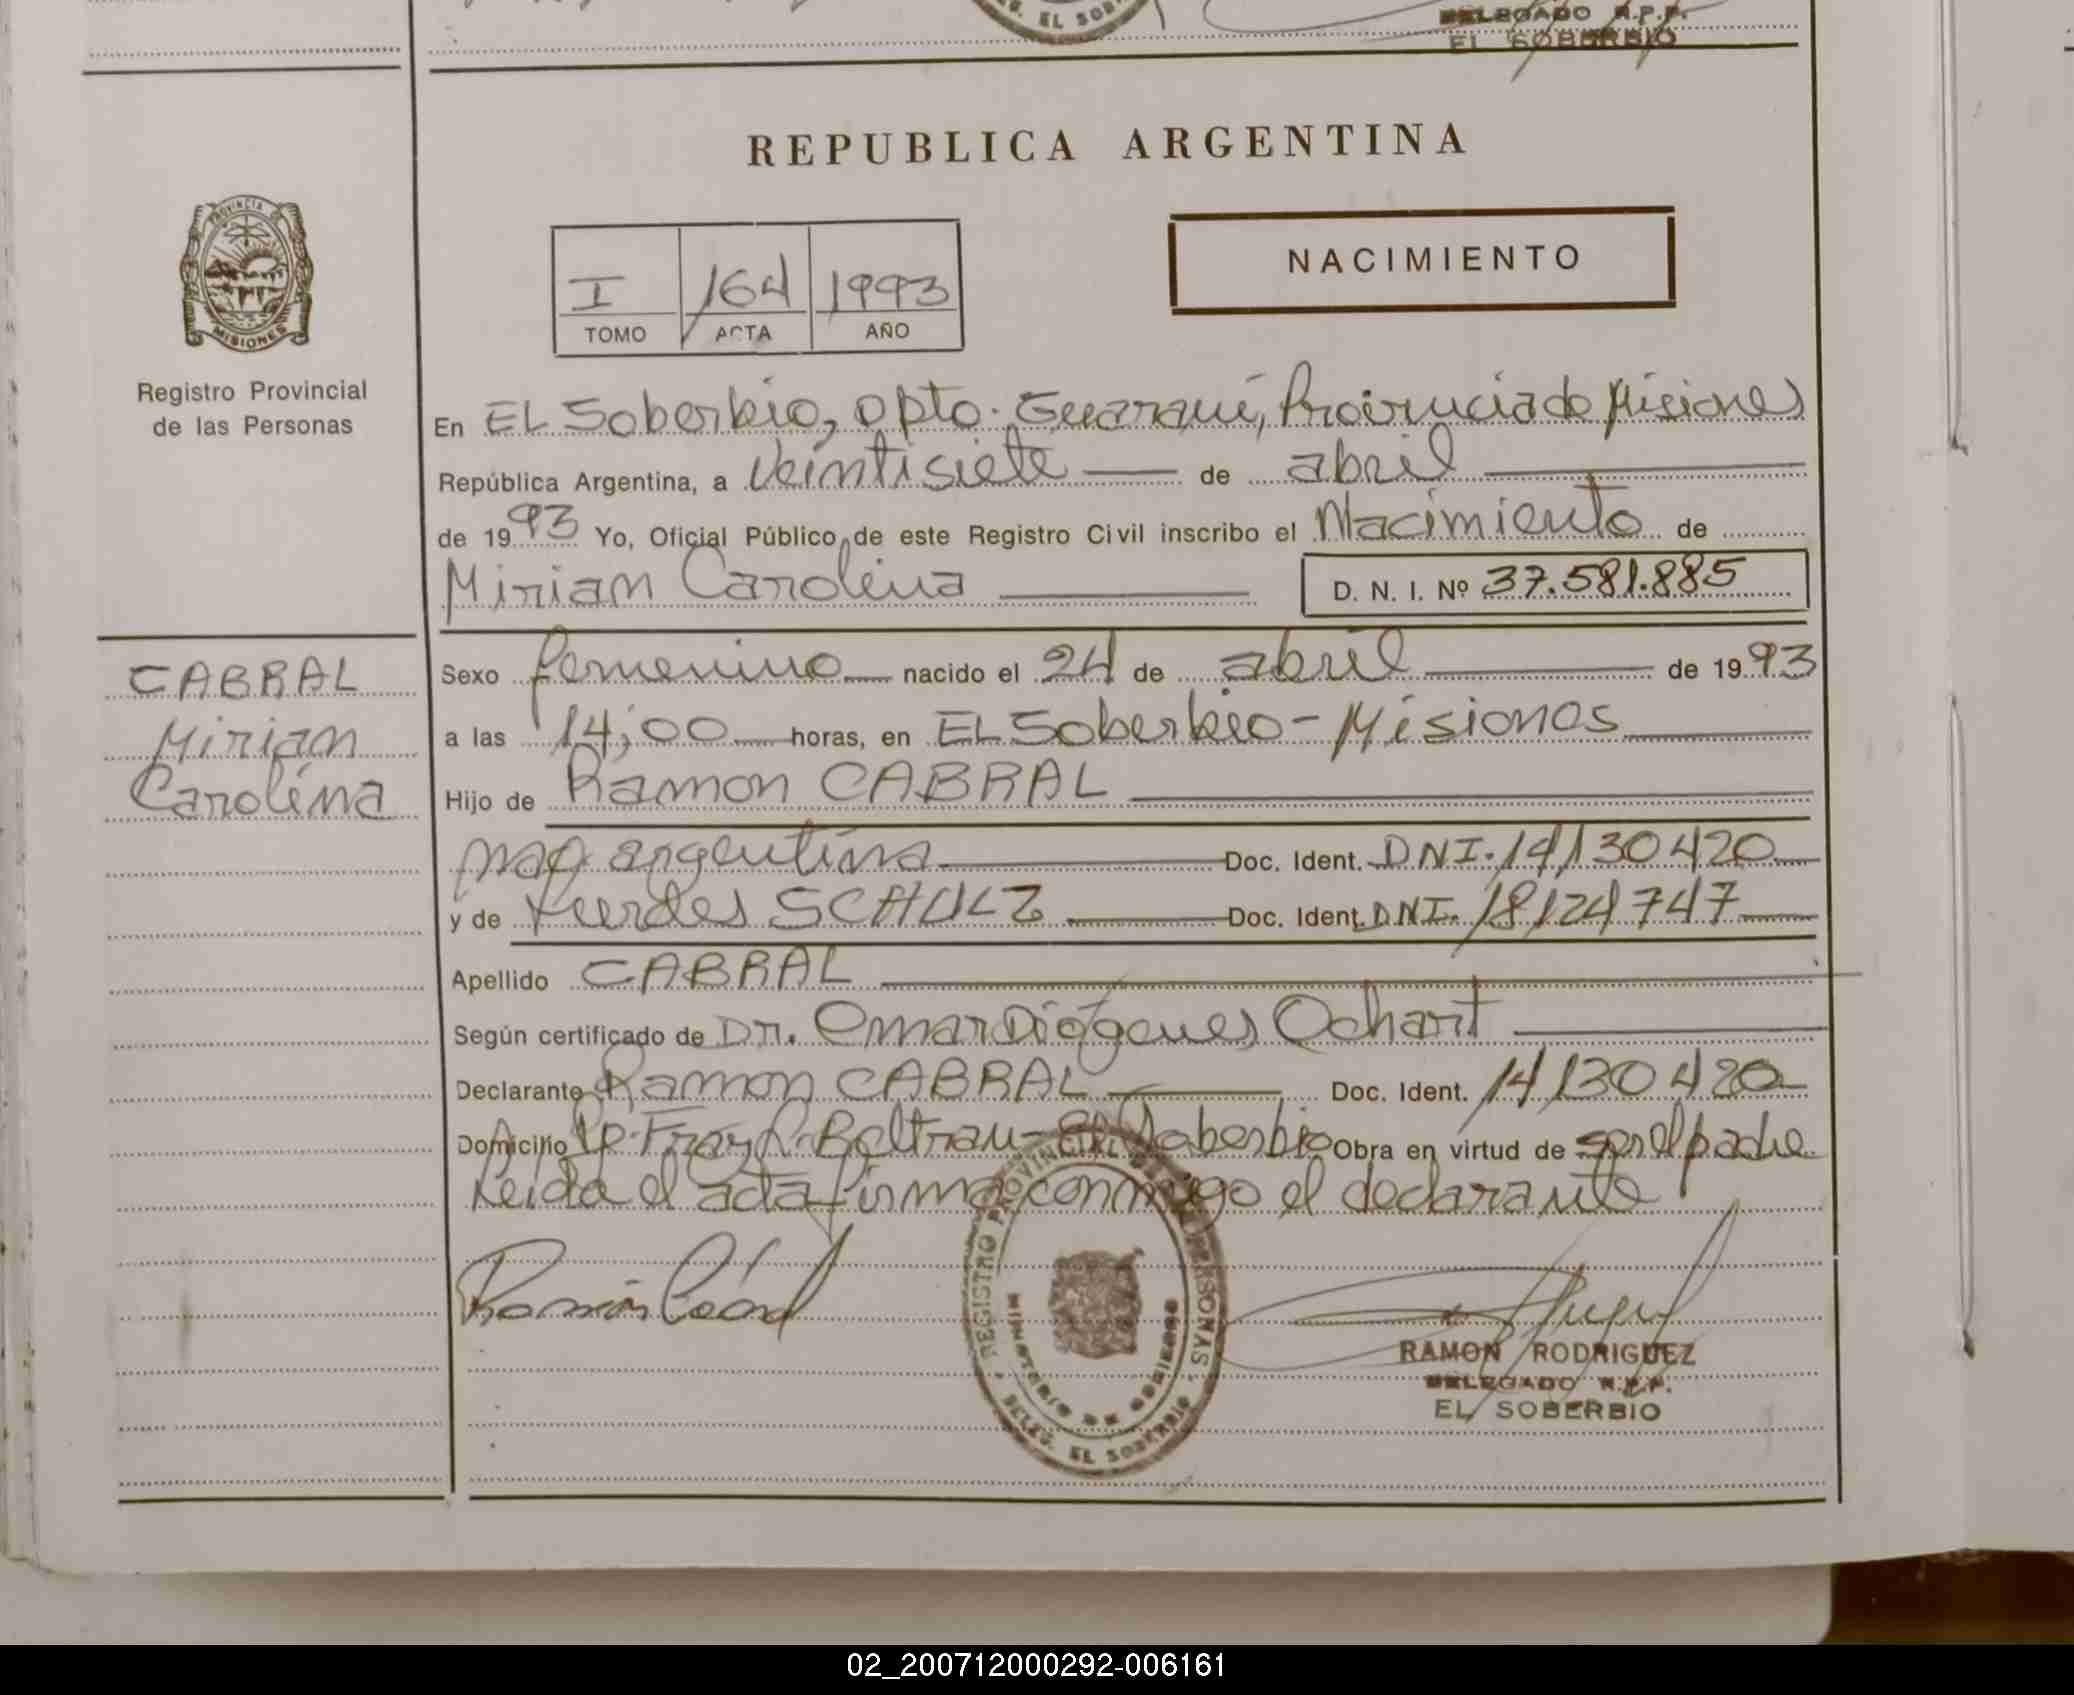 DELEGADO R.P.P.
EL SOBERBIO
REPUBLICA ARGENTINA
NACIMIENTO
I 164 1993
TOMO ACTA AÑO
PROVINCIA DE
MISIONES
Registro Provincial
de las Personas
En EL Soberbio, Dpto. Guaraní, Provincia de Misiones
República Argentina, a veintisiete de abril
de 1993 Yo, Oficial Público de este Registro Civil inscribo el Nacimiento de
Mirian Carolina D. N. I. Nº 37.581.885
CABRAL
Mirian
Carolina
Sexo femenino nacido el 24 de abril de 1993
a las 14,00 horas, en EL Soberbio - Misiones
Hijo de Ramon CABRAL
nac argentina Doc. Ident. DNI. 14130420
y de Lurdes SCHULZ Doc. Ident. DNI. 18124747
Apellido CABRAL
Según certificado de Dr. Omar Diógenes Ochart
Declarante Ramon CABRAL Doc. Ident. 14130420
Domicilio Pje. Fray L. Beltran - El Soberbio Obra en virtud de ser el padre
Leida el acta firma conmigo el declarante
REGISTRO PROVINCIAL DE LAS PERSONAS
MINISTERIO DE GOBIERNO
DELEG. EL SOBERBIO
RAMON RODRIGUEZ
DELEGADO R.P.P.
EL SOBERBIO
02_200712000292-006161